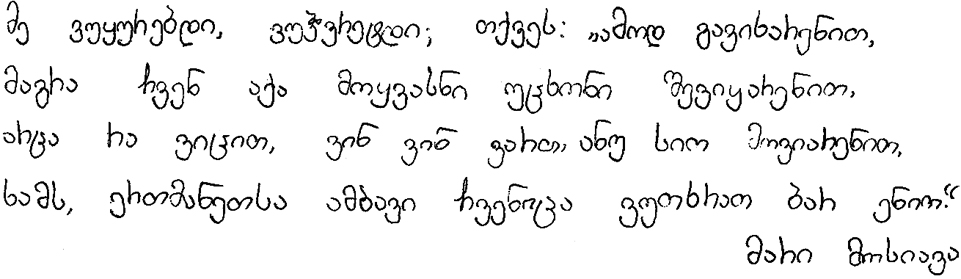 მე ვუყურებდი, ვუჭვრეტდი; თქვეს: „ამოდ გავიხარენით,
მაგრა ჩვენ აქა მოყვასნი უცხონი შევიყარენით,
არცა რა ვიცით, ვინ ვინ ვართ, ანუ სით მოვიარენით,
ხამს, ერთმანეთსა ამბავი ჩვენიცა ვუთხრათ ბარ ენით.“
მარი მოსიავა